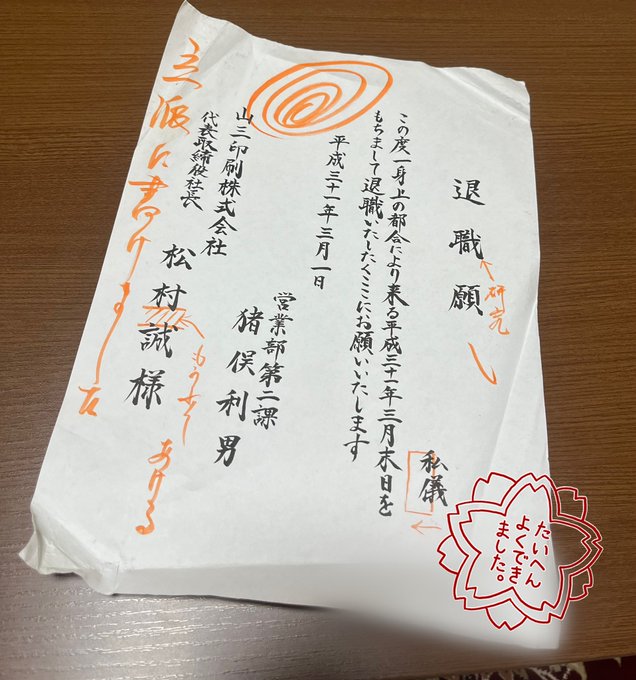 退職願
研究
私儀
この度一身上の都合により来る平成三十一年三月末日を
もちまして退職いたしたくここにお願いいたします
平成三十一年三月一日
営業部第二課
猪俣利男
山三印刷株式会社
代表取締役社長
松村誠様
もう少しあける
立派に書けました
たいへん
よくでき
ました。